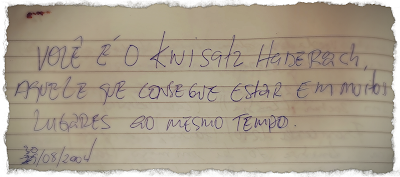 VOCÊ É O KwisatZ HADERach,
AQUELE QUE CONSEGUE EStAR Em muitos
LUGARES AO MESMO TEMPO.
/08/2004